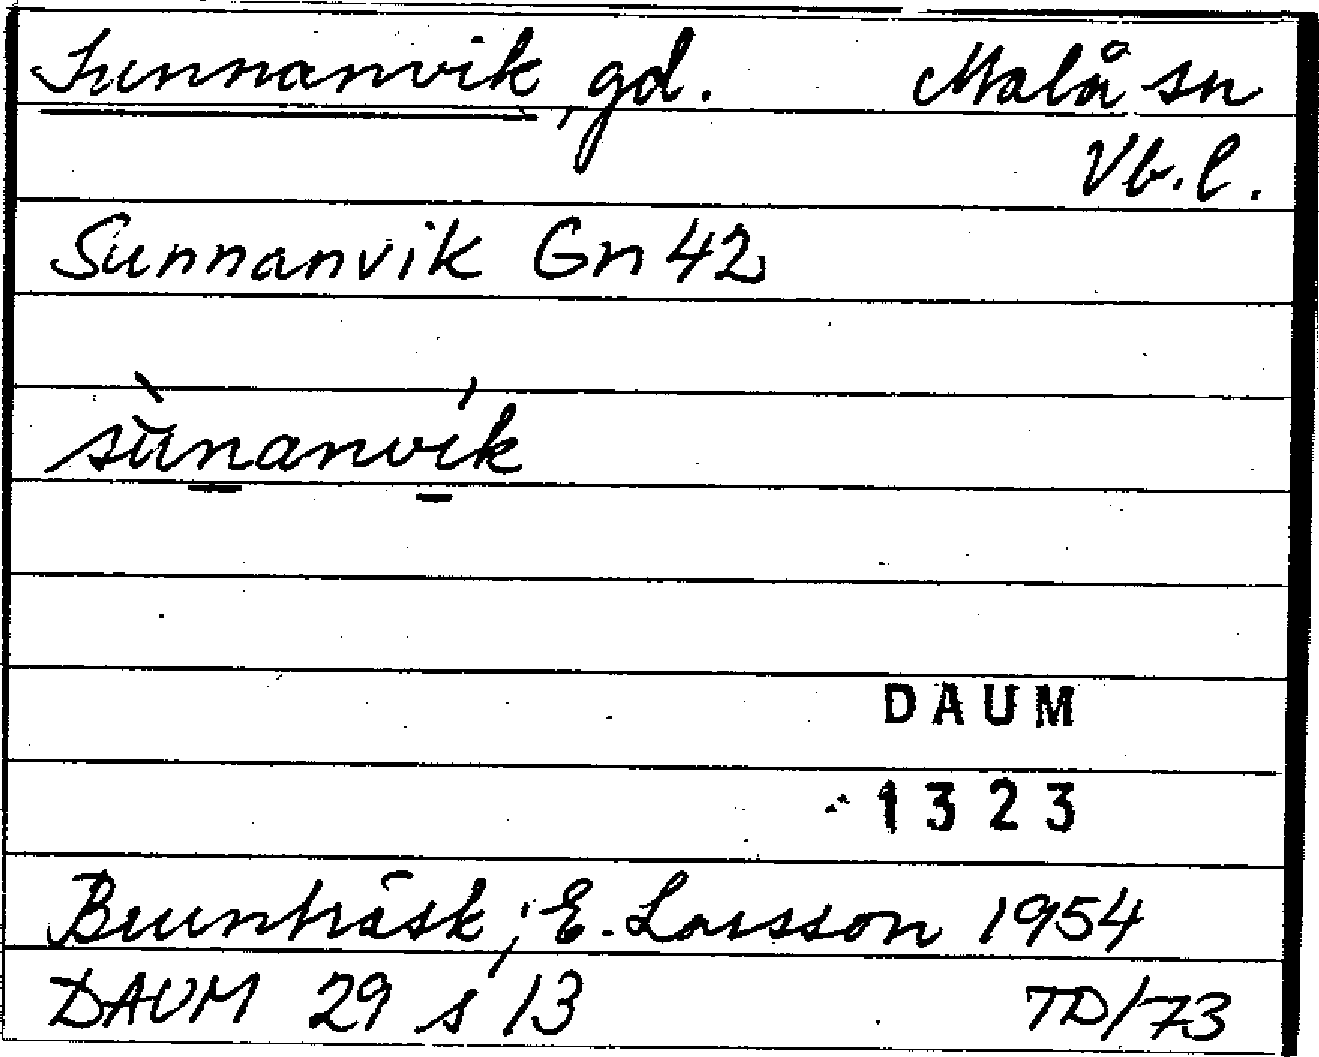 Sunnanvik, gd. Malå sn
Vb.l.
Sunnanvik Gn 42
sùnanvík
DAUM
1323
Brunträsk; E. Larsson 1954
DAUM 29 s 13 TD/73